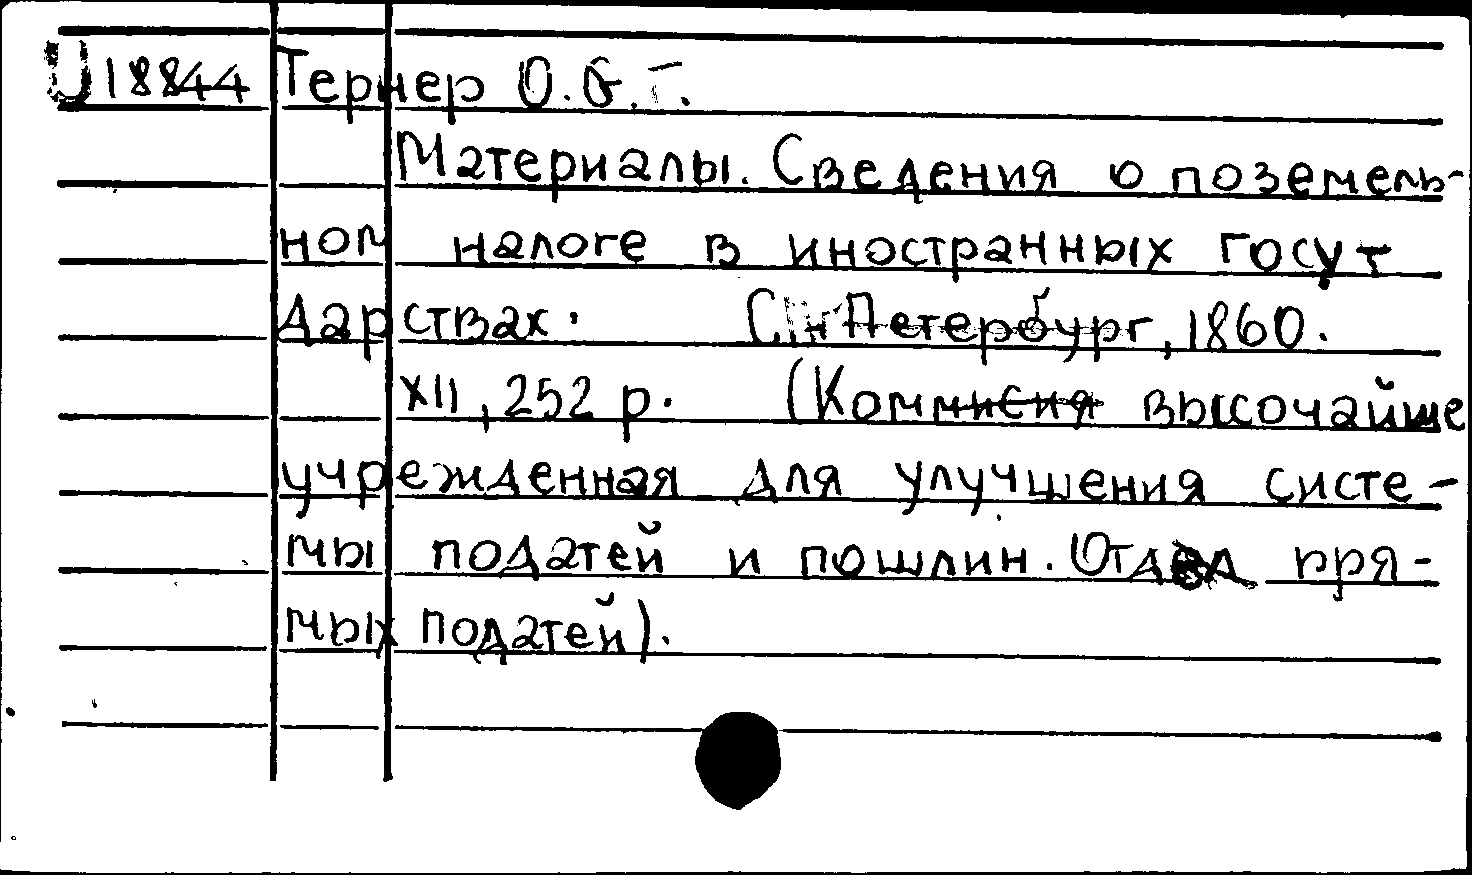 U 18844 Тернер О. G. Г.
Материалы. Сведения о поземель-
ном налоге в иностранных госу-
дарствах. Петербург, 1860.
XII, 252 p. (Коммисия высочайше
учрежденная для улучшения систе-
мы податей и пошлин. Отдел пря-
мых податей).